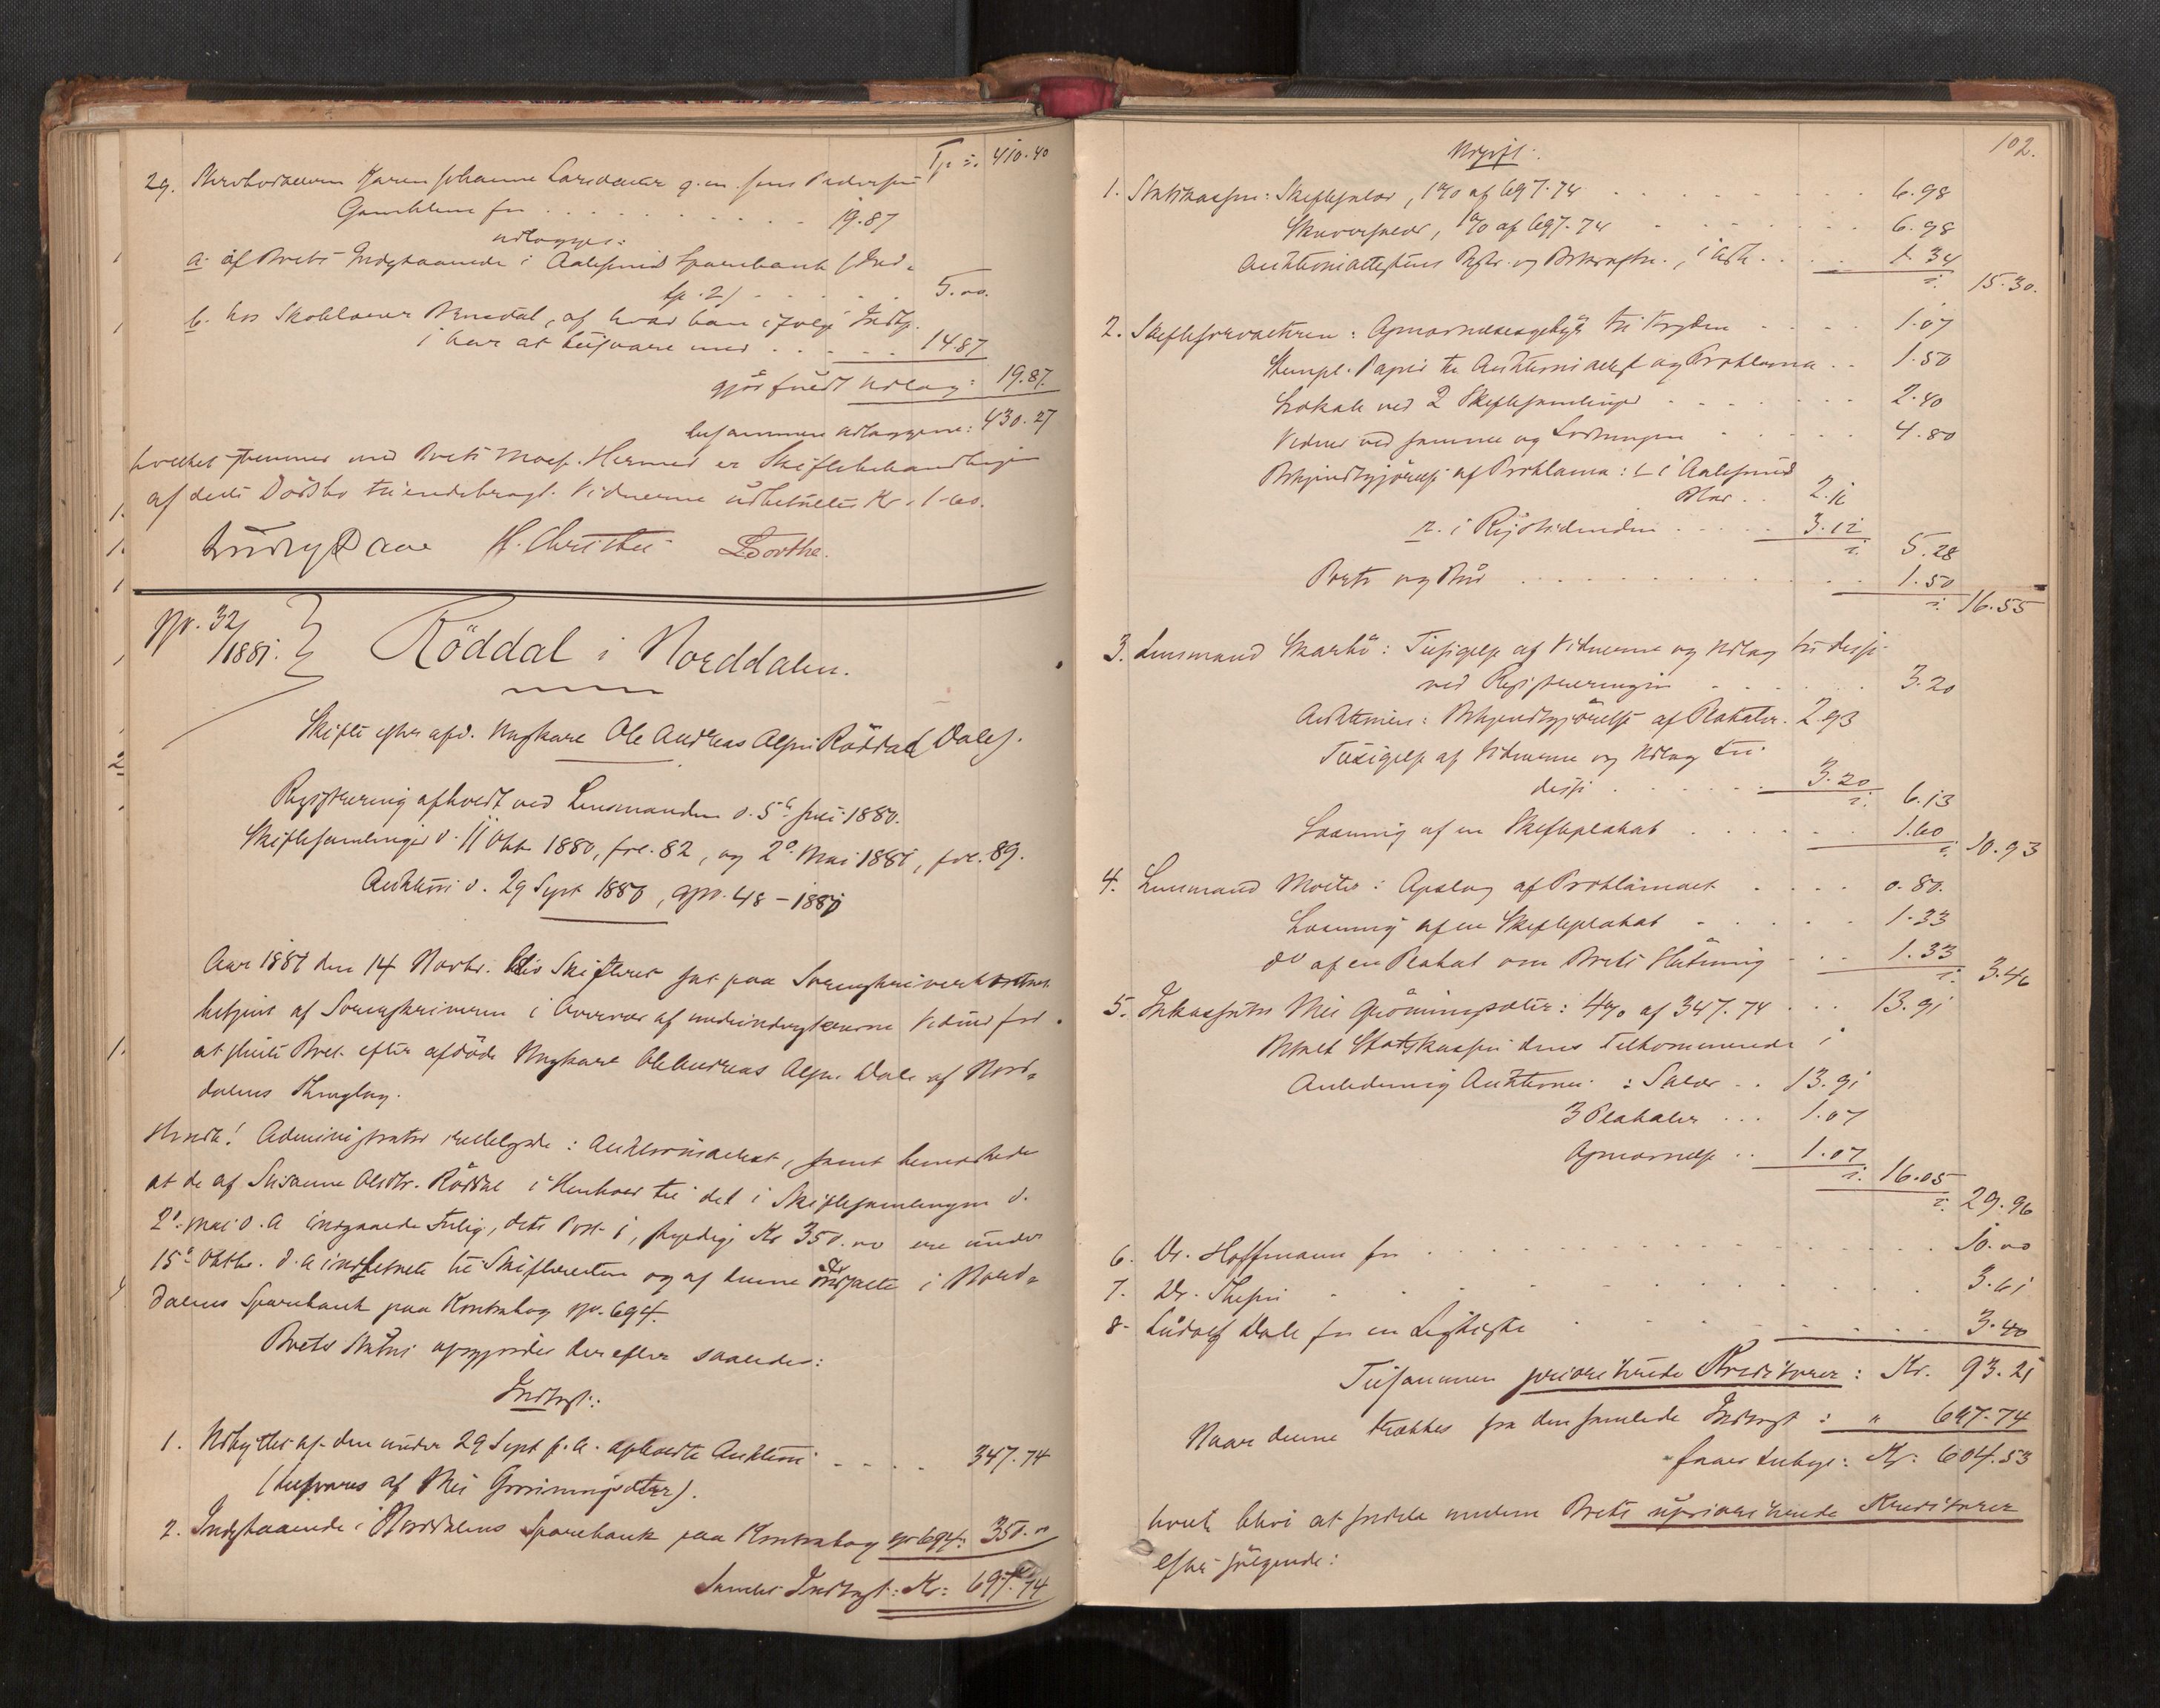 Tp. i. 410.40
29. Karen Johanne g. m. Jens Pedersen
for . . . . 19.87
udlægges:
a. af Boets Indestaaende i Aalesunds Sparebank (Ind-
tp. 2) . . . . 5.00.
b. hos Skoblærer af hvad han ifølge Indtp.
1 har at tilsvare med . . . . 14.87
gjør fuldt Udlag: 19.87.
tilsammen udlæggene: 430.27
hvilket stemmer med Boets Masse. Hermed er Skiftebehandlingen
af dette Dødsbo tilendebragt. Vidnerne udbetaltes Kr. 1.60.
Ludvig Daae H. Christie
No. 32/1881. Röddal i Norddalen.
Skifte efter afd. Ungkarl Ole Andreas Olsen Röddal (Dale).
Registrering afholdt ved Lensmanden d. 5te Juli 1880.
Skiftesamlinger d. 11 Oktr 1880, fol. 82, og 2den Mai 1881, fol. 89.
Auktion d. 29 Sept 1880, No. 48 – 1880
Aar 1881 den 14 Novbr. blev Skifteret sat paa Sorenskriverkontoret
betjent af Sorenskriveren i Overvær af undertegnede Vidner for
at slutte Boet efter afdöde Ungkarl Ole Andreas Olsen Dale af Nord-
dalens Thinglag.
Administrator fremlagde: Auktionsattest, samt bemærkede
at de af Susanne Olsdtr. Röddal i Henhold til det i Skiftesamlingen d.
2den Mai d. A. indgaaede Forlig, dets Post 1, skyldige Kr 350.00 ere under
15de Oktbr. d. A. indbetalte til Skifteretten og af denne indsatte i Nord-
dalens Sparebank paa Kontrabog No. 694.
Boets Status opgjordes derefter saaledes:
Indtægt:
1. Udbyttet af den under 29 Sept f. A. afholdte Auktion . . . . 347.74
(tilsvares af Nils Grönningsæter).
2. Indestaaende i Norddalens Sparebank paa Kontrabog No 694: 350.00
Samlet Indtægt: Kr: 697.74
102.
Udgift:
1. Statskassen: Skiftesalær, 1% af 697.74 . . . . 6.98
Skriversalær, 1% af 697.74 . . . . 6.98
Auktionsattestens . . . . 1.34
i. 15.30.
2. Skifteforvalteren: Opmærkelsesgebyr til . . . . 1.07
Stempl. Papir til Auktionsattest og Proklama . . 1.50
Lokale ved 2 Skiftesamlinger . . . . 2.40
Vidner ved samme og . . . . 4.80
Bekjendtgjörelse af Proklama: 1. i Aalesunds
Blad . . 2.16
2. i Rigstidenden . . . . 3.12
i. 5.28
Porto og Bud . . . . 1.50
i. 16.55
3. Lensmand Skarbö: Tilsigelse af Vidnerne og Udlæg til disse
ved Registreringen . . . . 3.20
Auktionen: Bekjendtgjörelse af Plakater. 2.93
Tilsigelse af Vidnerne og Udlæg til
disse . . . . 3.20
i. 6.13
Læsning af en Skifteplakat . . . . 1.60
i. 10.93
4. Lensmand : Opslag af Proklamaet . . . . 0.80.
Læsning af en Skifteplakat . . . . 1.33
do af en Plakat om Boets Slutning . . . 1.33
i. 3.46
5. Inkassator Nils Grönningsæter: 4% af 347.74 . . . 13.91
Betalt Statskassen dens Tilkommende i
Anledning Auktionen: Salær . . 13.91
3 Plakater . . . 1.07
. . 1.07
i. 16.05
i. 29.96
6. Dr. Hoffmann for . . . . 10.00
7. Dr. . . . . 3.61
8. Ludolf Dale for en Ligkiste . . . . 3.40
Tilsammen prioriterede Kreditorer: Kr. 93.21
Naar denne trækkes fra den samlede Indtægt: " 697.74
faaes tilbage: Kr: 604.53
hvilke blive at fordele mellem Boets uprioriterede Kreditorer
efter fölgende: